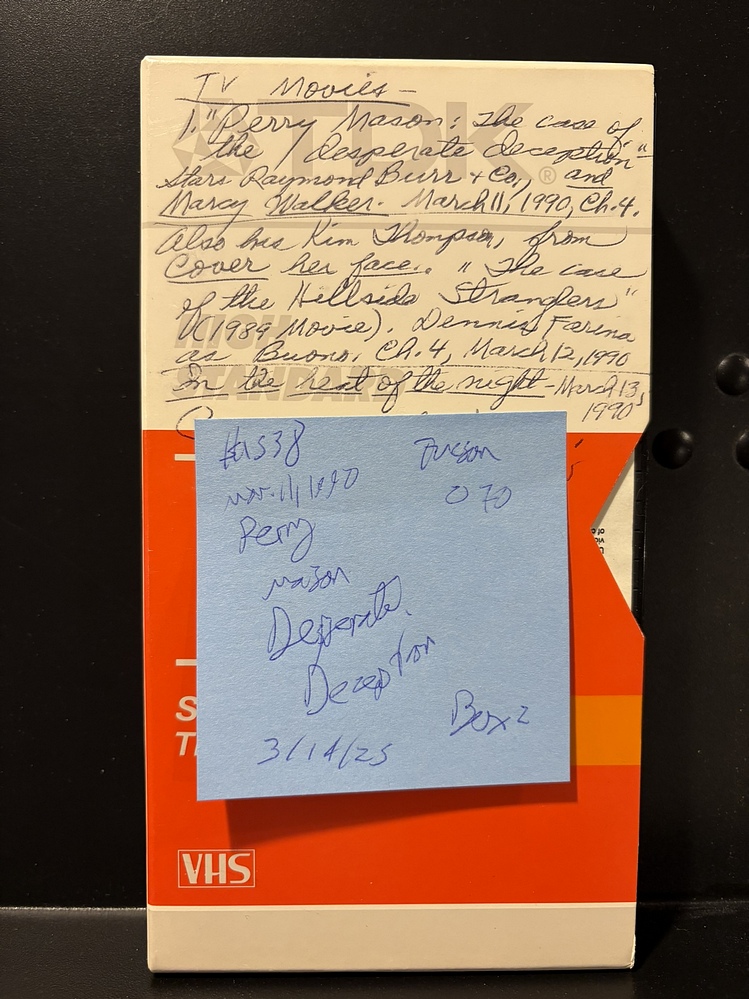 TV Movies -
TDK ®
1. "Perry Mason: The case of
the desperate deception"
Stars Raymond Burr + Co., and
Marcy Walker. March 11, 1990, Ch.4.
Also has Kim Thompson, from
Cover her face.. "The case
of the Hillside Stranglers"
(1989 Movie). Dennis Farina
as Buono. Ch.4, March 12, 1990
HIGH
STANDARD
In the heat of the night - March 13,
1990
#1538
Tucson
Mar. 11, 1990
070
Perry
Mason
Desperate
Deception
Box 2
3/14/25
VHS